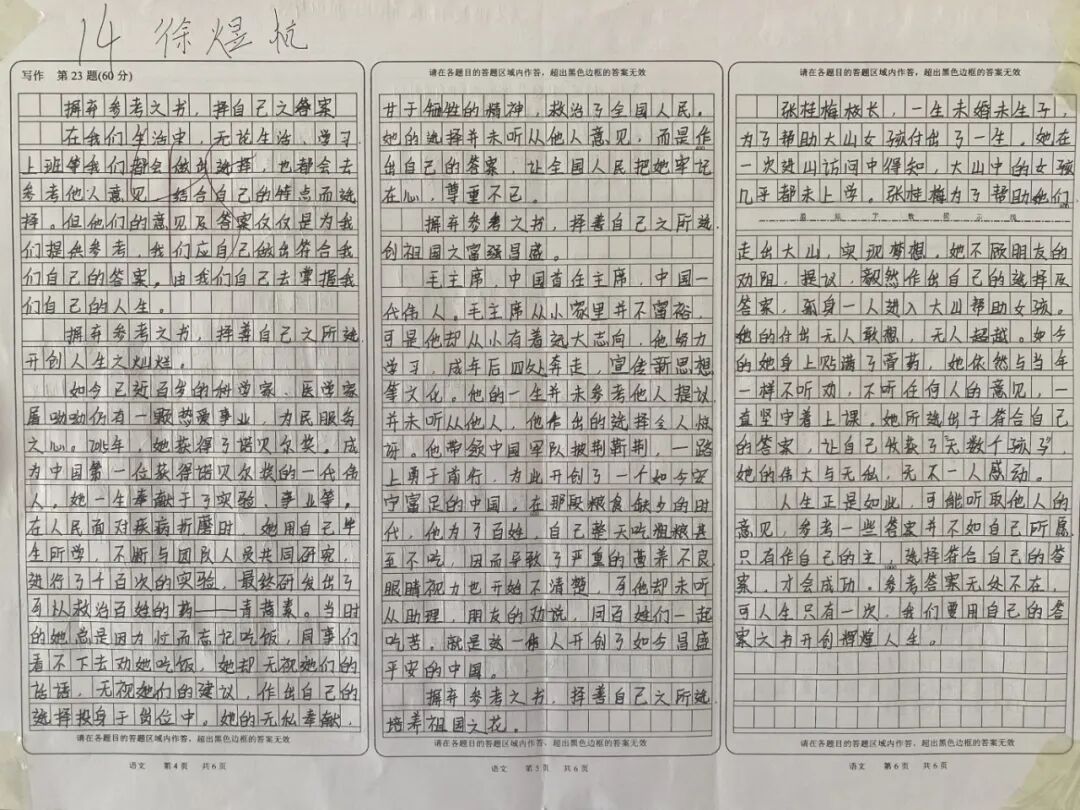 14 徐煜杭
写作 第23题(60分)
摒弃参考之书，择自己之答案
在我们生活中，无论生活、学习
上班等我们都会做出选择，也都会去
参考他人意见，结合自己的特点而选
择。但他们的意见及答案仅仅是为我
们提供参考，我们应自己做出符合我
们自己的答案。由我们自己去掌握我
们自己的人生。
摒弃参考之书，择善自己之所选
开创人生之灿烂。
如今已近百岁的科学家、医学家
屠呦呦仍有一颗热爱事业，为民服务
之心。2015年，她获得了诺贝尔奖。成
为中国第一位获得诺贝尔奖的一代伟
人。她一生奉献于了实验、事业等。
在人民面对疾病折磨时，她用自己毕
生所学，不断与团队人员共同研究，
进行了千百次的实验，最终研发出了
可以救治百姓的药——青蒿素。当时
的她总是因为忙而忘记吃饭，同事们
看不下去劝她吃饭，她却无视她们的
话语，无视她们的建议，作出自己的
选择投身于岗位中。她的无私奉献，
请在各题目的答题区域内作答，超出黑色边框的答案无效
语文 第4页 共6页
请在各题目的答题区域内作答，超出黑色边框的答案无效
甘于牺牲的精神，救治了全国人民。
她的选择并未听从他人意见，而是作
出自己的答案，让全国人民把她牢记
在心，尊重不已。
摒弃参考之书，择善自己之所选
创祖国之富强昌盛。
毛主席，中国首任主席，中国一
代伟人。毛主席从小家里并不富裕，
可是他却从小有着远大志向，他努力
学习，成年后四处奔走，宣传新思想
等文化。他的一生并未参考他人提议
并未听从他人，他作出的选择令人惊
讶。他带领中国军队披荆斩荆，一路
上勇于前行，为此开创了一个如今安
宁富足的中国。在那段粮食缺少的时
代，他为了百姓，自己整天吃粗粮甚
至不吃，因而导致了严重的营养不良
眼睛视力也开始不清楚，可他却未听
从助理，朋友的劝说，同百姓们一起
吃苦。就是这一伟人开创了如今昌盛
平安的中国。
摒弃参考之书，择善自己之所选
培养祖国之花。
请在各题目的答题区域内作答，超出黑色边框的答案无效
语文 第5页 共6页
请在各题目的答题区域内作答，超出黑色边框的答案无效
张桂梅校长，一生未婚未生子，
为了帮助大山女孩付出了一生。她在
一次进山访问中得知，大山中的女孩
几乎都未上学。张桂梅为了帮助她们
走出大山，实现梦想。她不顾朋友的
劝阻，提议，毅然作出自己的选择及
答案，孤身一人进入大山帮助女孩。
她的付出无人敢想，无人超越。如今
的她身上贴满了膏药，她依然与当年
一样不听劝，不听任何人的意见，一
直坚守着上课。她所选出于符合自己
的答案，让自己收获了无数个孩子，
她的伟大与无私，无不一人感动。
人生正是如此，可能听取他人的
意见，参考一些答案并不如自己所属
只有作自己的主，选择符合自己的答
案，才会成功。参考答案无处不在，
可人生只有一次，我们要用自己的答
案之书开创辉煌人生。
请在各题目的答题区域内作答，超出黑色边框的答案无效
语文 第6页 共6页